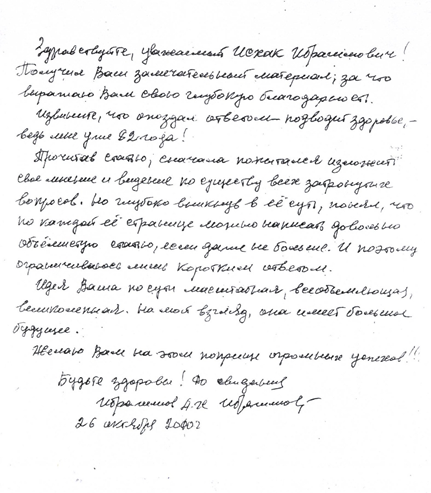 Здравствуйте, уважаемый Исхак Ибрагимович!
Получил Ваш замечательный материал, за что
выражаю Вам свою глубокую благодарность.
Извините, что опоздал ответом – подводит здоровье, –
ведь мне уже 82 года!
Прочитав статью, сначала попытался изложить
свое мнение и видение по существу всех затронутых
вопросов. Но глубоко вникнув в её суть, понял, что
по каждой её странице можно написать довольно
объёмистую статью, если даже не больше. И поэтому
ограничиваюсь лишь коротким ответом.
Идея Ваша по сути масштабная, всеобъемлющая,
великолепная. На мой взгляд, она имеет большое
будущее.
Желаю Вам на этом поприще огромных успехов!!
Будьте здоровы! До свидания
Ибрагимов
26 октября